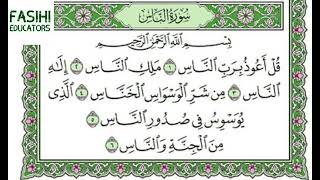 FASIHI
EDUCATORS
سُورَةُ النَّاسِ
بِسْمِ اللَّهِ الرَّحْمَٰنِ الرَّحِيمِ
قُلْ أَعُوذُ بِرَبِّ النَّاسِ ١ مَلِكِ النَّاسِ ٢ إِلَٰهِ
النَّاسِ ٣ مِن شَرِّ الْوَسْوَاسِ الْخَنَّاسِ ٤ الَّذِي
يُوَسْوِسُ فِي صُدُورِ النَّاسِ ٥
مِنَ الْجِنَّةِ وَالنَّاسِ ٦